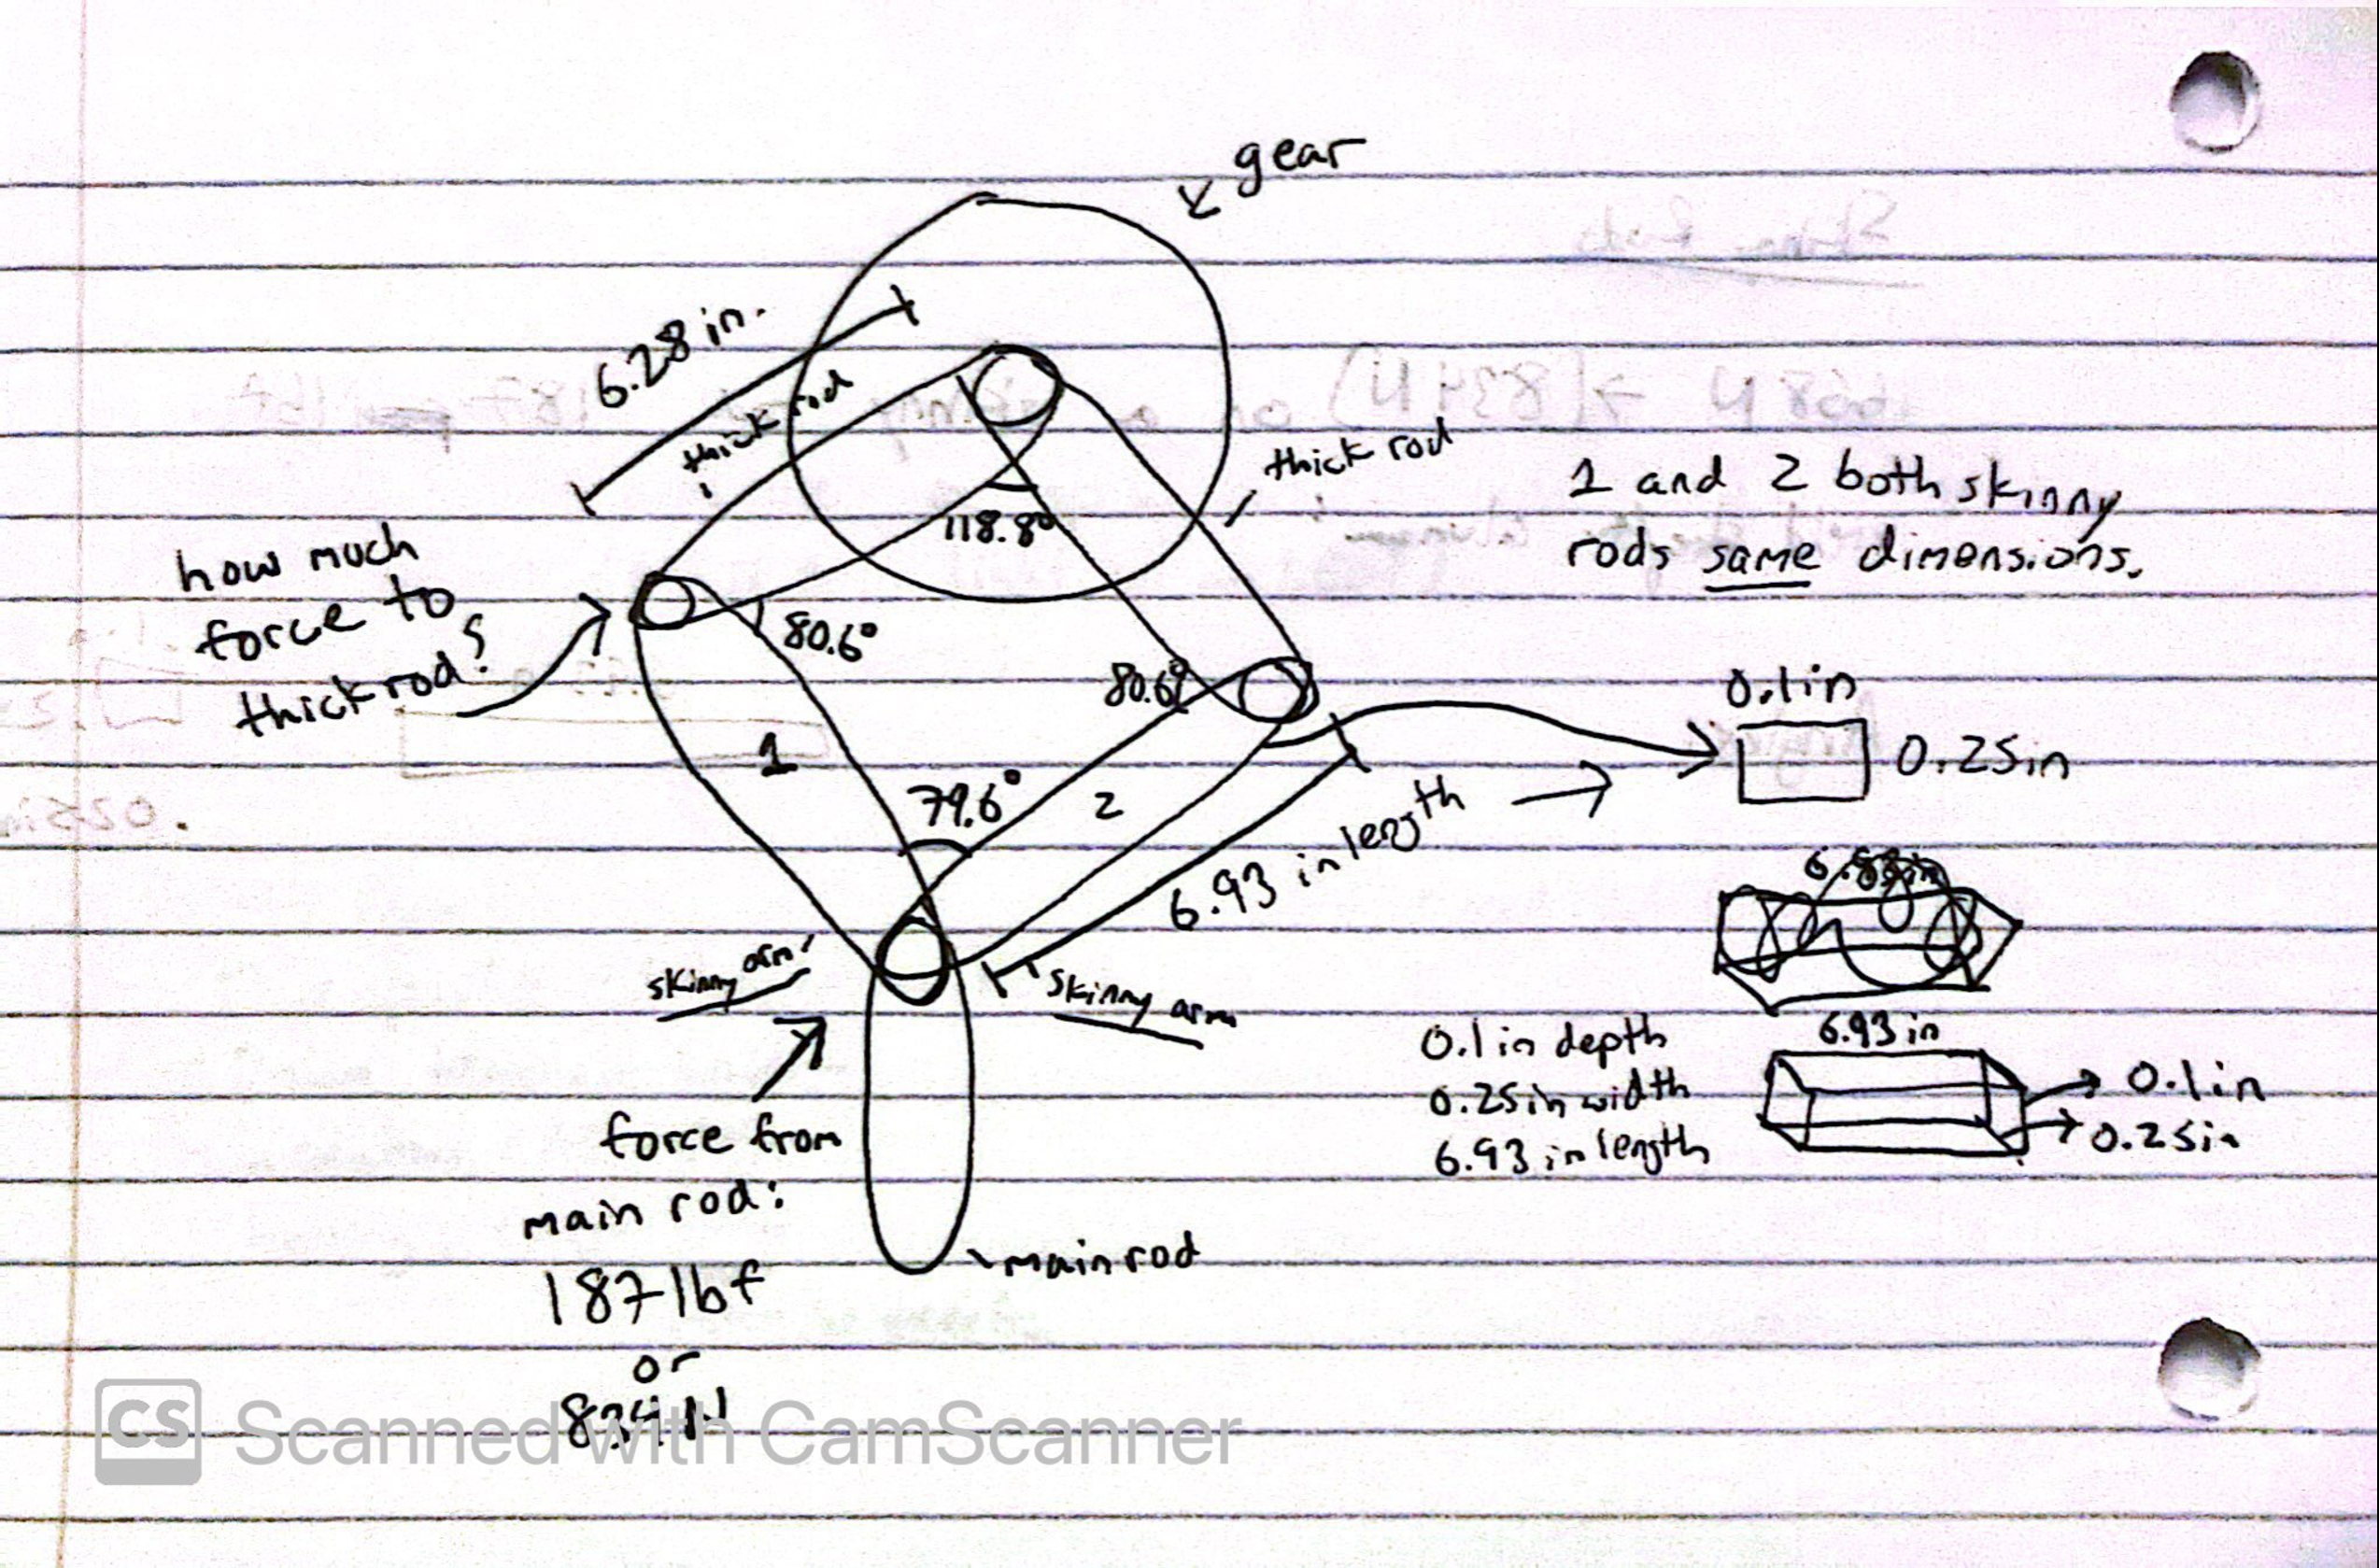 gear
6.28 in.
thick rod
thick rod
118.8°
1 and 2 both skinny
rods same dimensions.
how much
force to
thick rod?
80.6°
80.6°
0.1in
0.25in
1
79.6°
2
6.93 in length
skinny arm
skinny arm
0.1 in depth
0.25in width
6.93 in length
6.93 in
0.1in
0.25in
force from
main rod:
187 lbf
or
834 N
main rod
CS Scanned with CamScanner